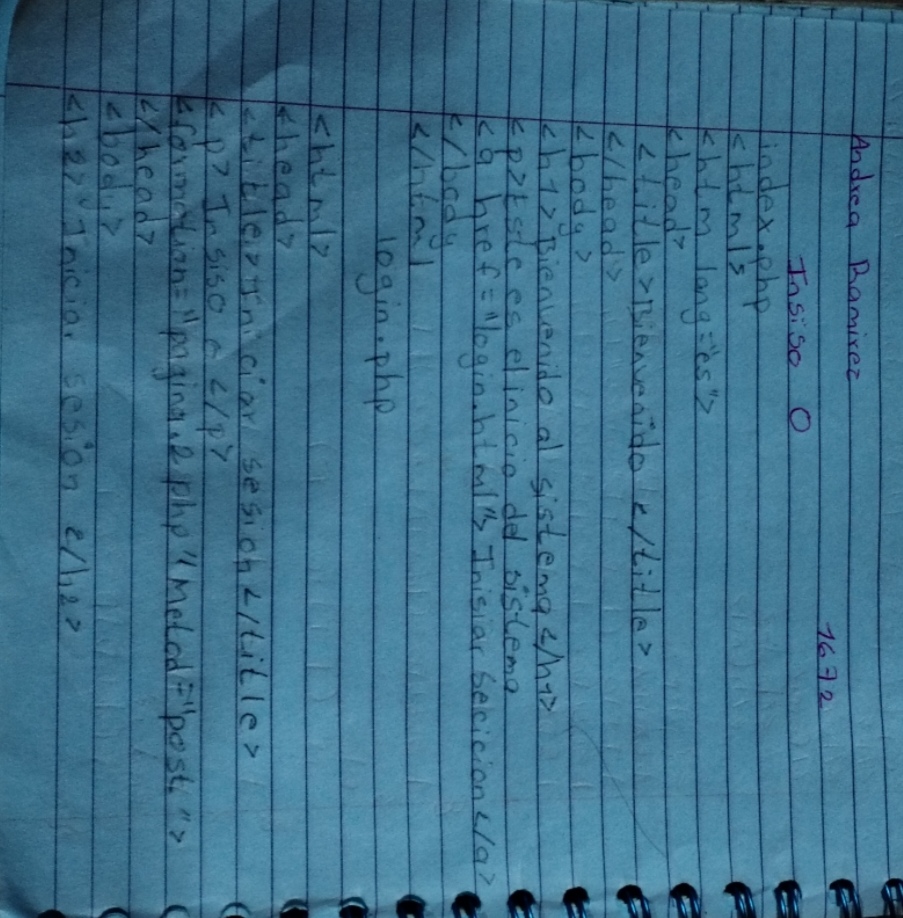 Andrea Ramirez
1672
Insiso O
index.php
<html>
<htm lang="es">
<head>
<title>Bienvenido </title>
</head>
<body>
<h1>Bienvenido al sistema </h1>
<p>este es el inicio del sistema
<a href="login.html"> Inisiar secicion </a>
</body
</html
login.php
<html>
<head>
<title>Iniciar sesion </title>
<p> Insiso c </p>
"pagina.2php" Metod="post">
</head>
<body>
<h2> Iniciar sesion </h2>